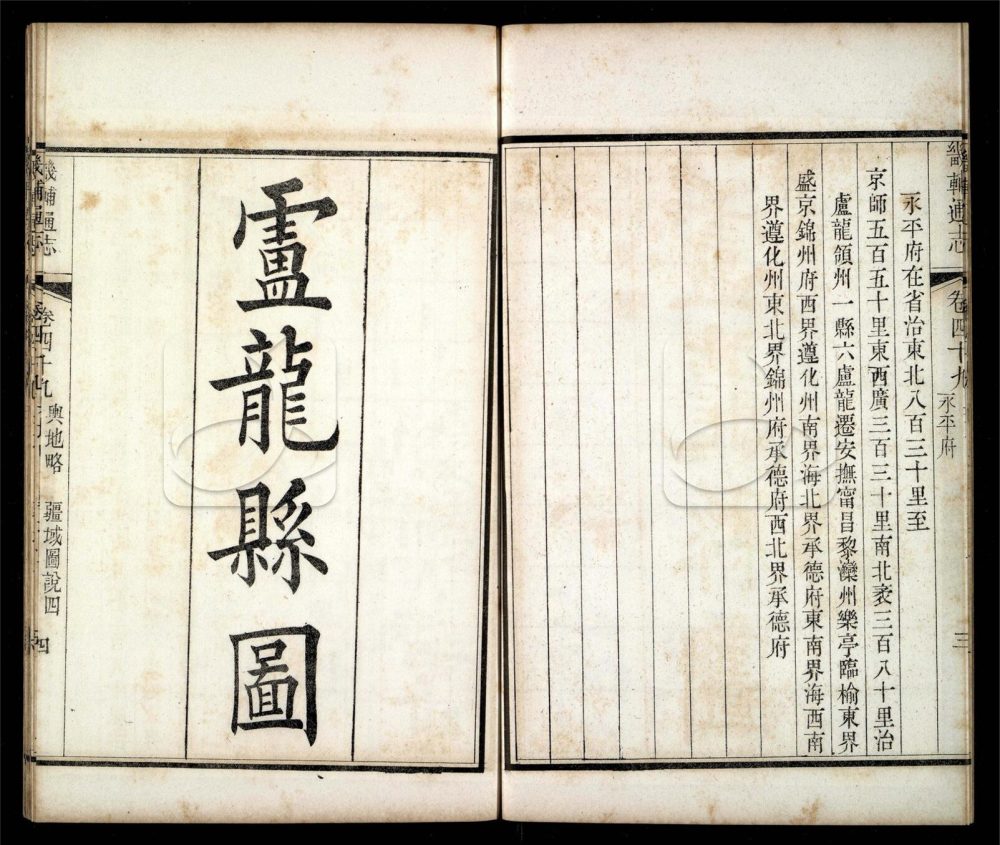 畿輔通志 卷四十九 永平府 三
永平府在省治東北八百三十里至
京師五百五十里東西廣三百三十里南北袤三百八十里治
盧龍領州一縣六盧龍遷安撫甯昌黎灤州樂亭臨榆東界
盛京錦州府西界遵化州南界海北界承德府東南界海西南
界遵化州東北界錦州府承德府西北界承德府
盧龍縣圖
畿輔通志 卷四十九 輿地略 疆域圖說四 四